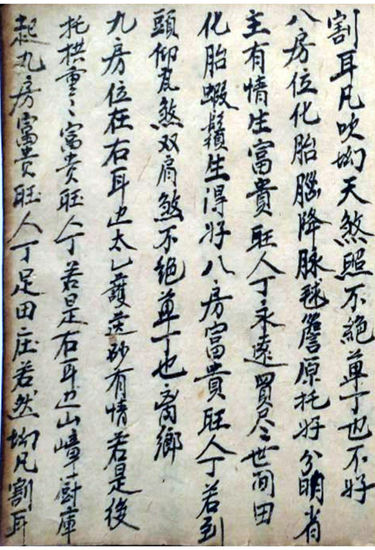 割耳凡吹坳天煞照不絶单丁也不好
八房位化胎腦降脉毬簷原托好分明肖
主有情生富貴旺人丁永遠買尽世间田
化胎蝦鬚生得好八房富貴旺人丁若到
頭仰瓦煞双肩煞不絶单丁也离鄉
九房位在右耳边太乙護送砂有情若是後
托拱重々富貴旺人丁若是右耳边山嶂厨庫
起九房富貴旺人丁足田庄若然坳凡割耳